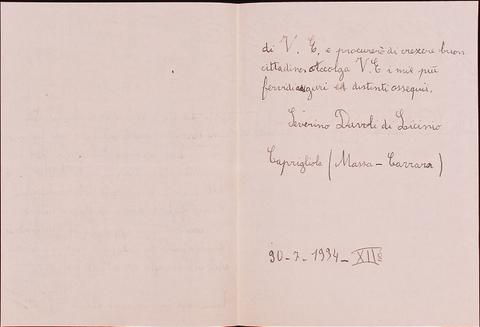 di V. E. e procurerò di crescere buon
cittadino. Accolga V. E i miei più
fervidi auguri ed distinti ossequi.
Severino Davoli di Licinio
Caprigliola (Massa - Carrara)
30 - 7 - 1934 - XII